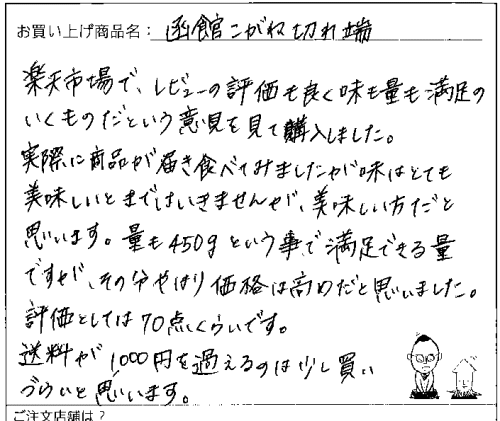 お買い上げ商品名: 函館こがね切れ端
楽天市場で、レビューの評価も良く味も量も満足の
いくものだという意見を見て購入しました。
実際に商品が届き食べてみましたが味はとても
美味しいとまではいきませんが、美味しい方だと
思います。量も450gという事で満足できる量
ですが、その分やはり価格は高めだと思いました。
評価としては70点くらいです。
送料が1000円を過えるのは少し買い
づらいと思います。
ご注文店舗は?